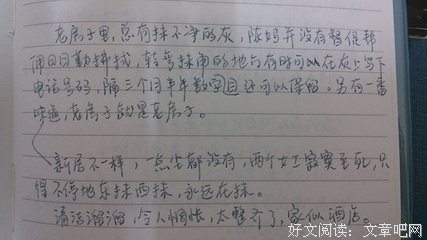 老房子里，总有抹不净的灰，陈妈并没有督促帮
佣日日勤拂拭，转弯抹角的地方有时可以在灰上写下
电话号码，隔三个月半年数字还可以保留。另有一番
味道，老房子就是老房子。
新居不一样，一点尘都没有，两个女工寂寞至死，只
得不停地东抹西抹，永远在抹。
清洁溜溜，令人惆怅，太整齐了，家似酒店。
好文阅读：文章吧网